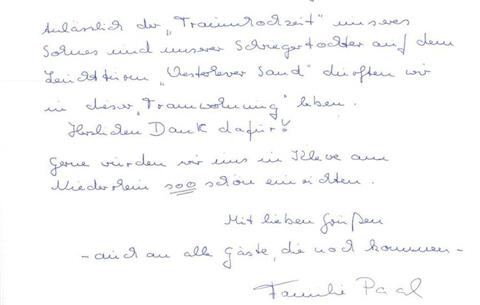 Anlässlich der „Traumhochzeit" unseres
Sohnes und unserer Schwiegertochter auf dem
Leuchtturm „Westerhever Sand" durften wir
in dieser „Traumwohnung" leben.
Herzlichen Dank dafür!
Gerne würden wir uns in Kleve am
Niederrhein sooo schön einrichten.
Mit lieben Grüßen
- auch an alle Gäste, die noch kommen -
Familie Paal